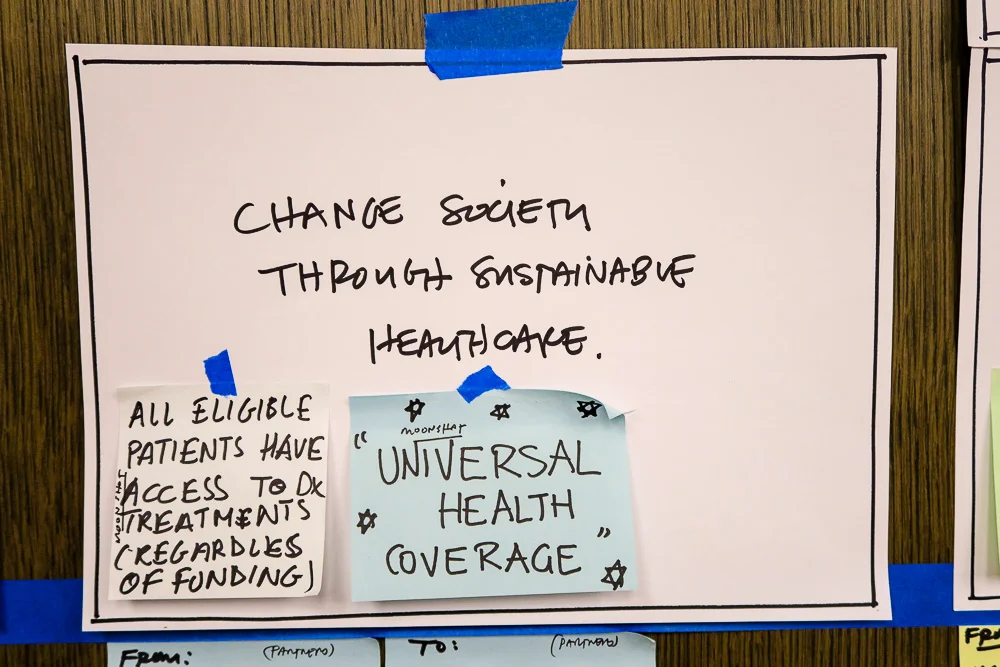 CHANGE SOCIETY
THROUGH SUSTAINABLE
HEALTHCARE.
ALL ELIGIBLE
PATIENTS HAVE
ACCESS TO Dx
TREATMENTS
(REGARDLES
OF FUNDING)
MOONSHOT
MOONSHOT
"UNIVERSAL
HEALTH
COVERAGE"
FROM:
(PARTNERS)
TO:
(PARTNERS)